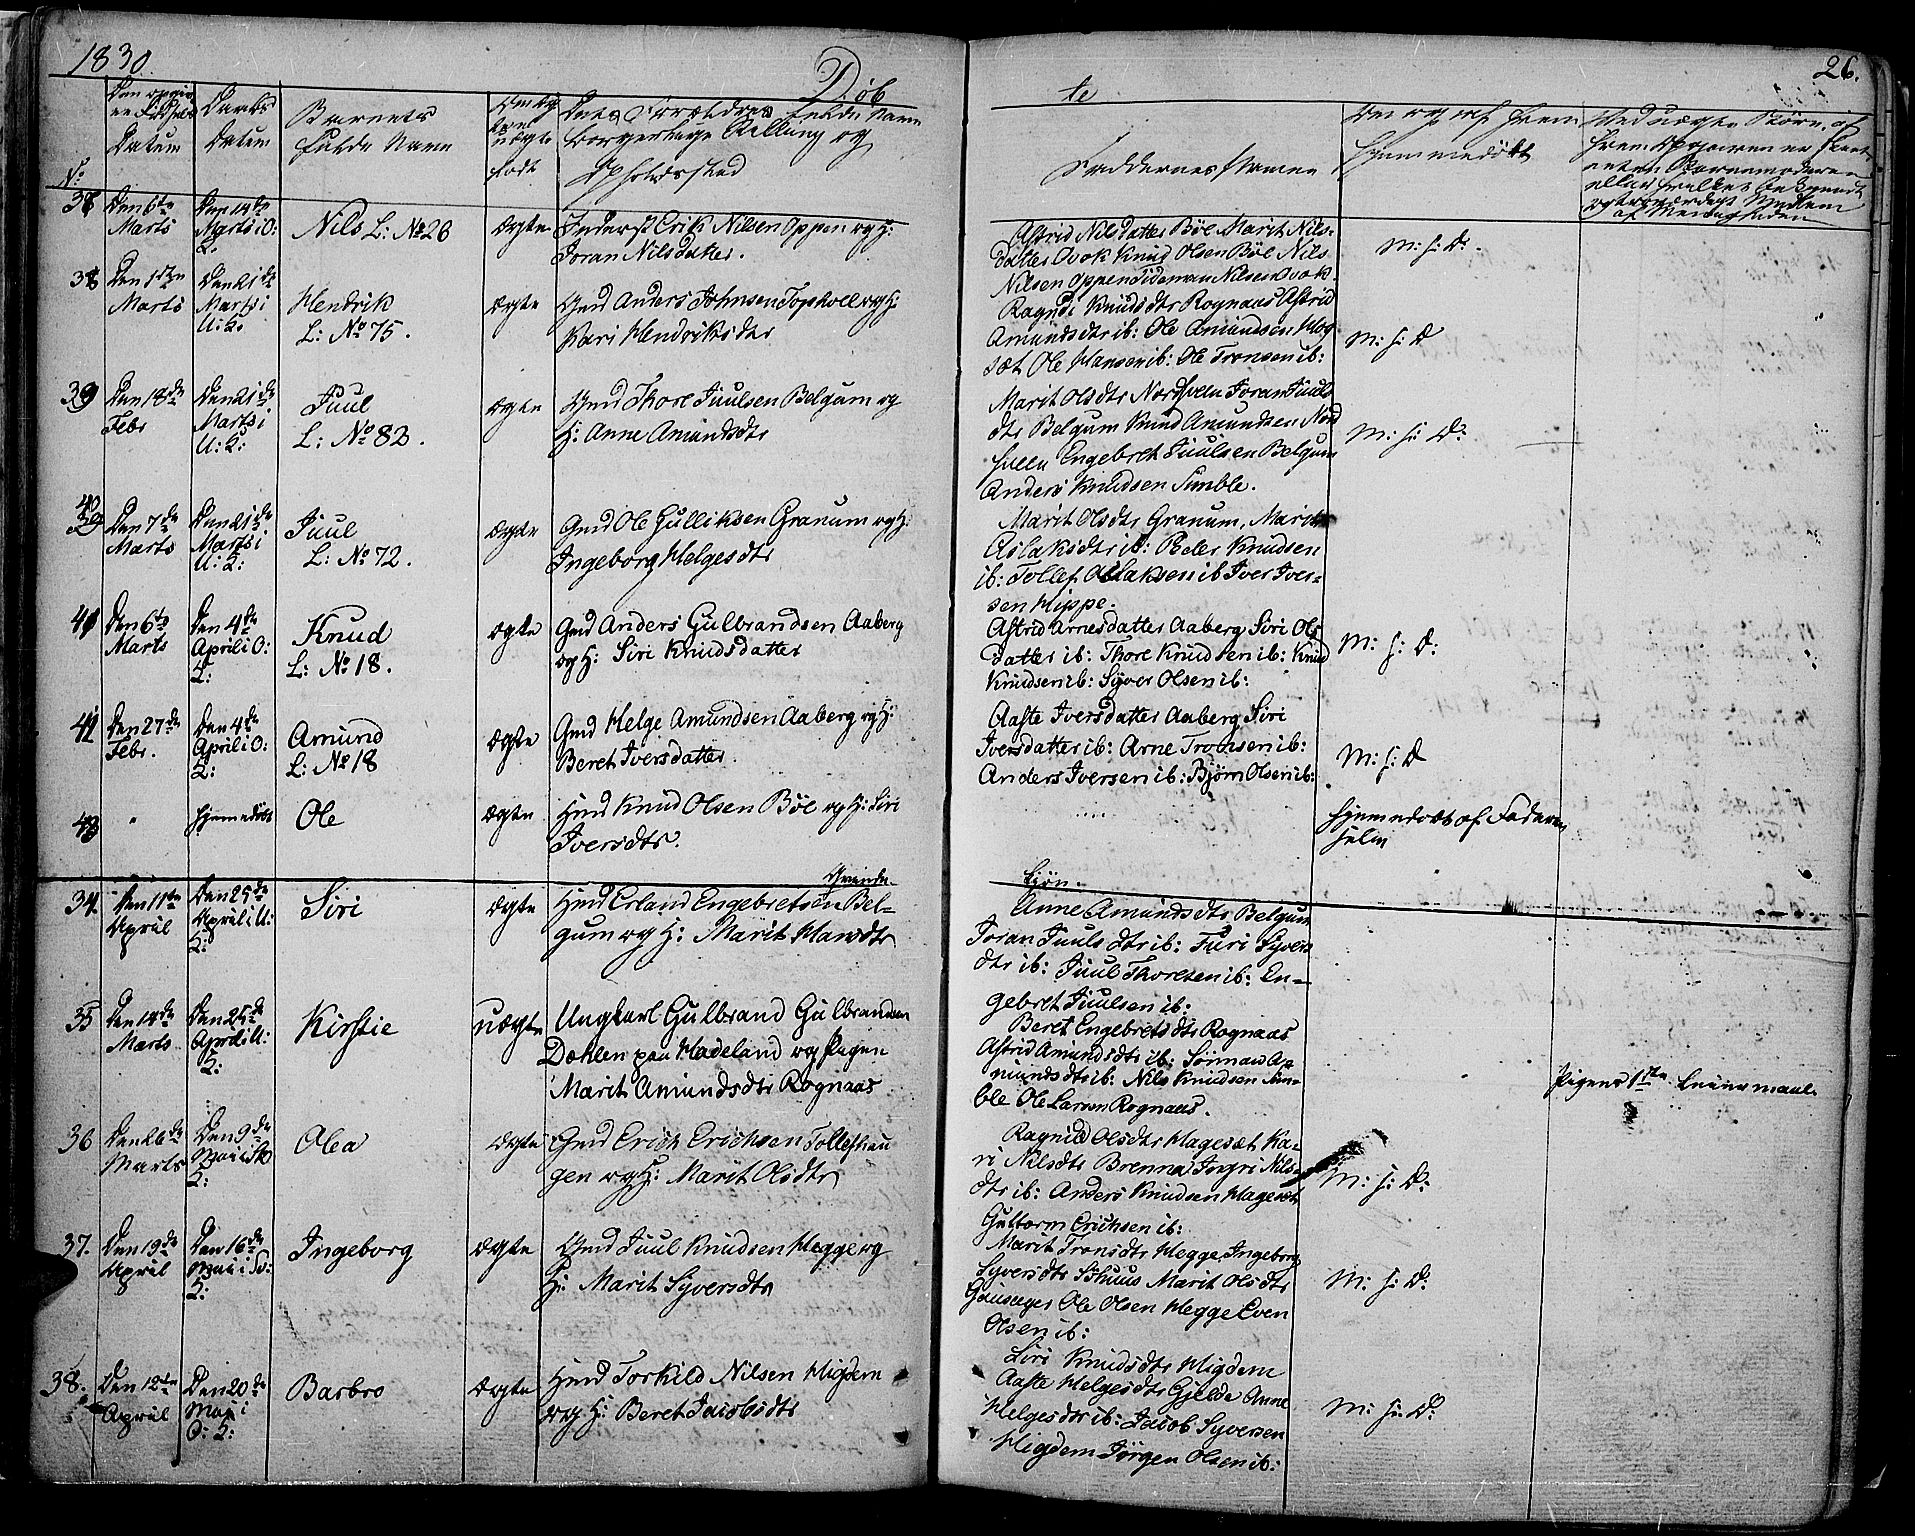 1830.
Døb
te
26.
No
Den opgiv
ne Fødsels
Datum
Daabs
Datum
Barnets
fulde Navn
Om Eg
te el
uægte
født
Dets Forældres fulde Navn
borgerlige Stilling og
Opholdssted
Faddernes Navne
Om og af hvem
hjemmedøbt
Ved uægte Børn, af
hvem Opgaven er skeet
enten Barnemoderen
eller hvilket bekjendt
og troværdigt Medlem
af Menigheden
Den 6te
Marts
Den 14de
Marts i O:
K:
Nils L: No 26
Ægte
Inderst Erik Nilsen Oppen og H:
Joran Nilsdatter.
Astrid Nilsdatter Böe Marit Nils-
datter Qvok Knud Olsen Böe Nils
Nilsen Oppen Tideman Nilsen Qvok.
M: f: D:
38
Den
Marts
Den 21de
Marts i
U: K:
Hendrik
L: No 75.
Ægte
Gmd Anders Johnsen Tophoel og H:
Kari Hendriksdtr
Ragndi Knudsdtr Rognaas Astrid
Amundsdtr ib: Ole Amundsen Hag
sæt Ole Hansen ib: Ole Tronsen ib:
M: f: D
39
Den 18de
Febr
Den 21de
Marts i
U: K:
Juul
L: No 82.
Ægte
Gmd Thore Juulsen Belgum og
H: Anne Amundsdtr
Marit Olsdtr Nordsveen Joran Juuls
dtr Belgum Knud Amundsen Nord
sveen Engebret Juulsen Belgum
Anders Knudsen Semble.
M: f: D:
40
Den 7de
Marts
Den 21de
Marts i
U: K:
Juul
L: No 72.
Ægte
Gmd Ole Gulliksen Granum og H:
Ingeborg Helgesdtr
Marit Olsdtr Granum, Marit
Aslaksdtr ib: Peder Knudsen
ib: Tollef Aslaksen ib Iver Iver-
sen Hippe.
41
Den 6te
Marts
Den 4de
April i O:
K:
Knud
L: No 18.
Ægte
Gmd Anders Gulbrandsen Aaberg
og H: Siri Knudsdatter
Astrid Arnesdatter Aaberg Siri Ols
datter ib: Thore Knudsen ib: Knud
Knudsen ib: Syver Olsen ib:
M: f: D:
Den 27de
Febr.
Den 4de
April i O:
K:
Amund
L: No 18
Ægte
Gmd Helge Amundsen Aaberg og H:
Beret Iversdatter.
Aaste Iversdatter Aaberg Siri
Iversdatter ib: Arne Tronsen ib:
Anders Iversen ib: Bjørn Olsen ib:
M: f: D
43
"
hjemedöbt
Ole
Ægte
Hmd Knud Olsen Böe og H: Siri
Iversdtr.
Hjemedöbt af Faderen
selv
Qvinde-
kjøn.
34.
Den 11te
April
Den 25de
April i U:
K:
Siri
Ægte
Hmd Erland Engebretsen Bel-
gum og H: Marit Hansdtr
Anne Amundsdtr Belgum
Joran Juulsdtr ib: Turi Syvers
dtr ib: Juul Thoresen ib: En-
gebret Juulsen ib:
35
Den 14de
Marts
Den 25de
April i U:
K:
Kirstie
uægte
Ungkarl Gulbrand Gulbrandsen
Dæhlen paa Hadeland og Pigen
Marit Amundsdtr Rognaas
Beret Engebretsdtr Rognaas
Astrid Amundsdtr ib: A-
mundsdtr ib: Nils Knudsen Sem-
ble Ole Larsen Rognaas.
Pigens 1ste Leiermaal.
36
Den 26de
Marts
Den 9de
Mai i
K:
Olea
Ægte
Gmd Erich Erichsen Tollefshau
gen og H: Marit Olsdtr
Ragnild Olsdtr Hagesæt Ka-
ri Nilsdtr Brenna Ingri Nils-
dtr ib: Anders Knudsen Hagesæt
Guttorm Erichsen ib:
M: f: D:
37.
Den 19de
April
Den 16de
Mai i
K:
Ingeborg
Ægte
Gmd Juul Knudsen Hegge og
H: Marit Syversdtr
Marit Tronsdtr Hegge Ingeborg
Syversdtr Marit Olsdtr
Ole Olsen Hegge Even
Olsen ib:
M: f: D:
38.
Den 12te
April
Den 20de
Mai i
O: K:
Barbro
Ægte
Hmd Torkild Nilsen Higdem
og H: Beret Jacobsdtr
Siri Knudsdtr Higdem
Aaste Helgesdtr Gjelde Anne
Helgesdtr ib: Jacob Syversen
Higdem Jørgen Olsen ib:
M: f: D: